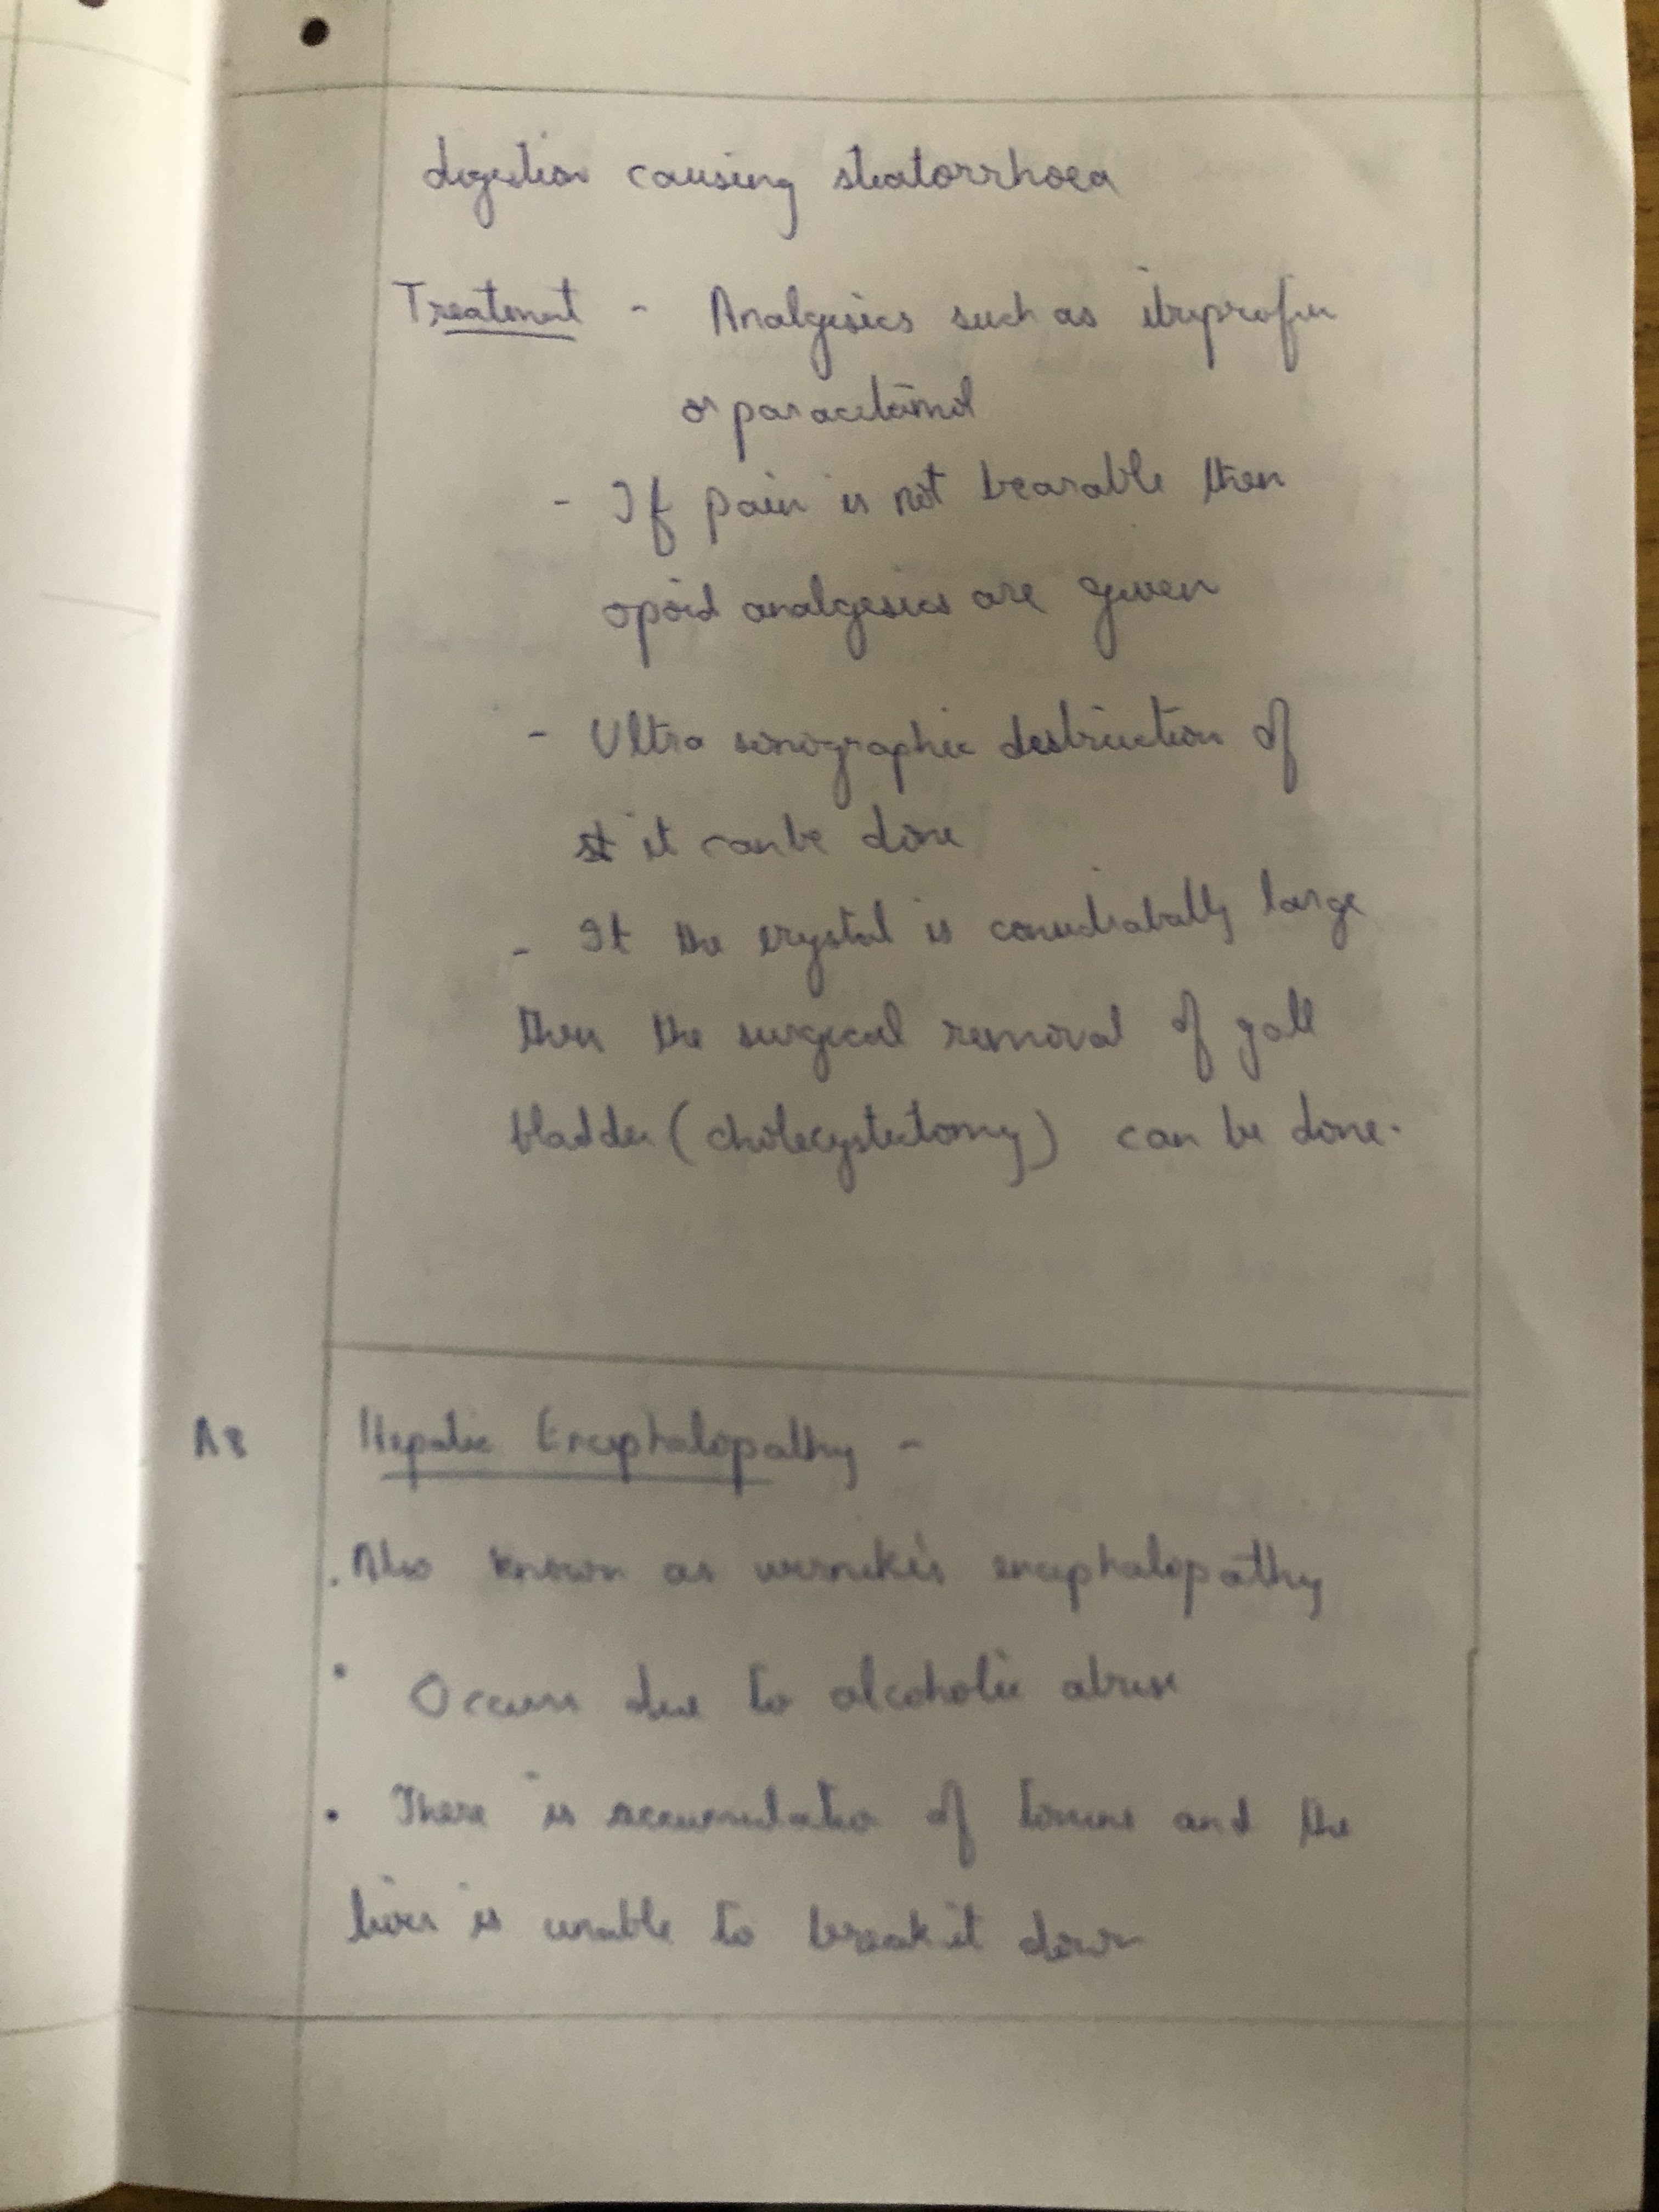 digestion causing steatorrhoea
Treatment - Analgesics such as ibuprofen
or paracetamol
- If pain is not bearable then
opoid analgesics are given
- Ultra sonographic destruction of
st it can be done
- It the crystal is considrabally large
then the surgical removal of gall
bladder (cholecystectomy) can be done.
A8 Hepatic Encephalopathy -
. Also known as wernike's encephalopathy
• Occurs due to alcoholic abuse
• There is accumulation of toxins and the
liver is unable to break it down